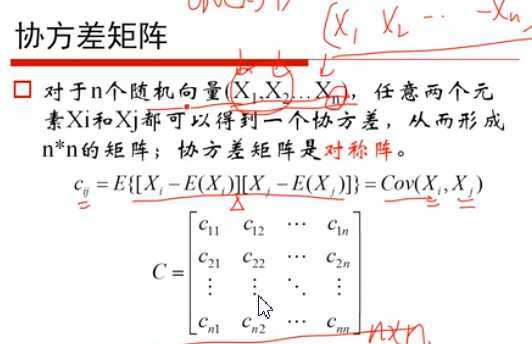 (X₁ X₂ ⋯ -Xₙ
协方差矩阵
对于n个随机向量(X₁,X₂…Xₙ)，任意两个元
素Xi和Xj都可以得到一个协方差，从而形成
n*n的矩阵；协方差矩阵是对称阵。
c_ij = E{[X_i − E(X_i)][X_j − E(X_j)]} = Cov(X_i, X_j)
c₁₁ c₁₂ ⋯ c₁ₙ
c₂₁ c₂₂ ⋯ c₂ₙ
C = ⋮ ⋮ ⋱ ⋮
cₙ₁ cₙ₂ ⋯ cₙₙ
n×n